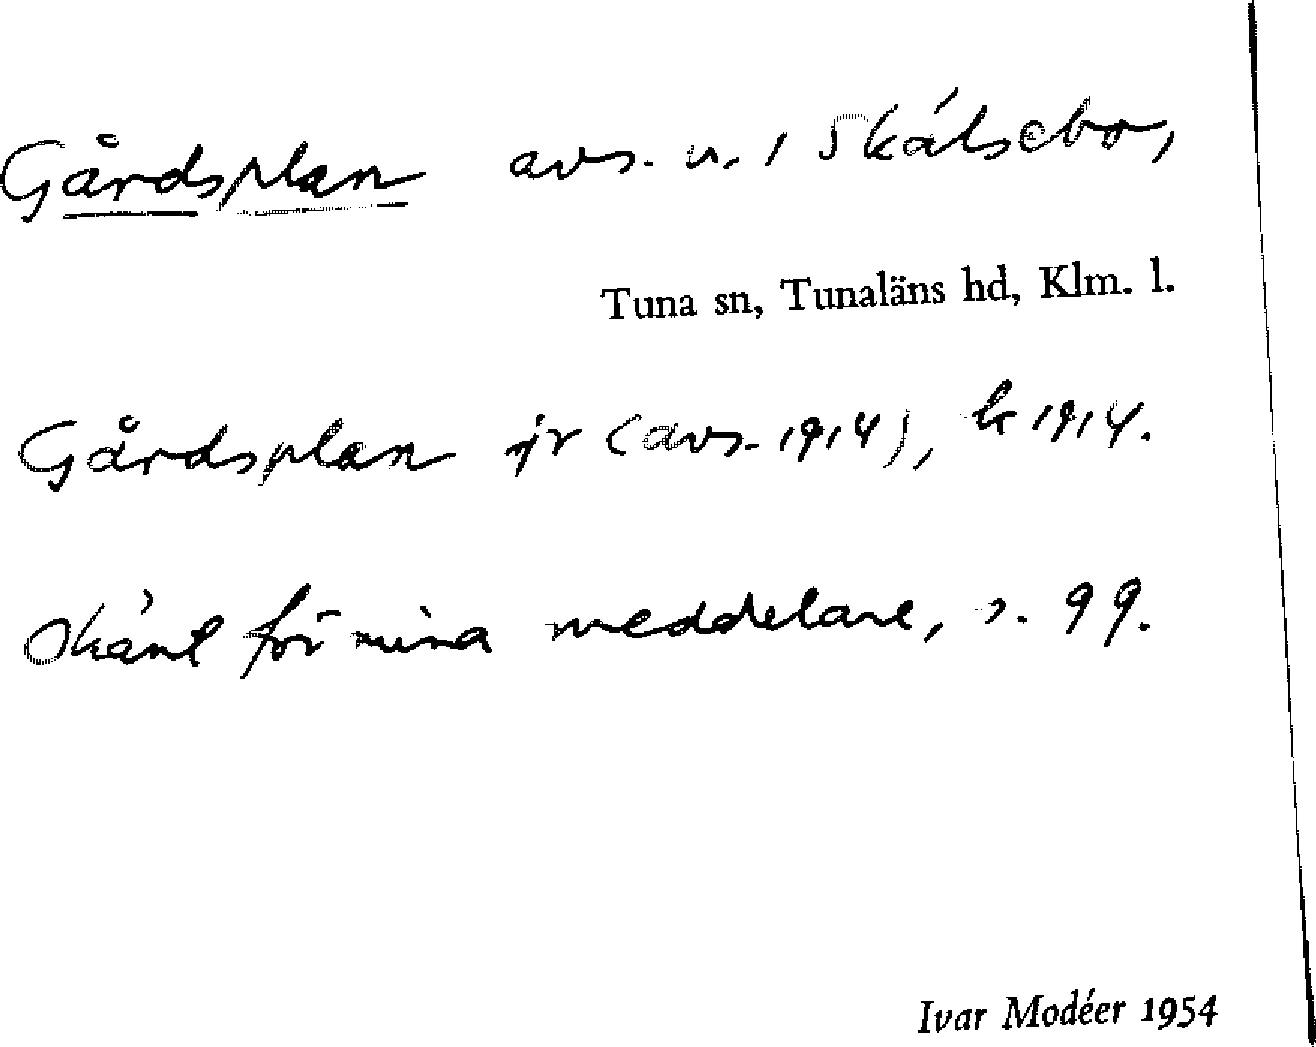 Gårdsplan avs. u. 1 Skälsebo,
Tuna sn, Tunaläns hd, Klm. l.
Gårdsplan jr (avs. 1914), lr 1914.
Okänt för mina meddelare, s. 99.
Ivar Modéer 1954